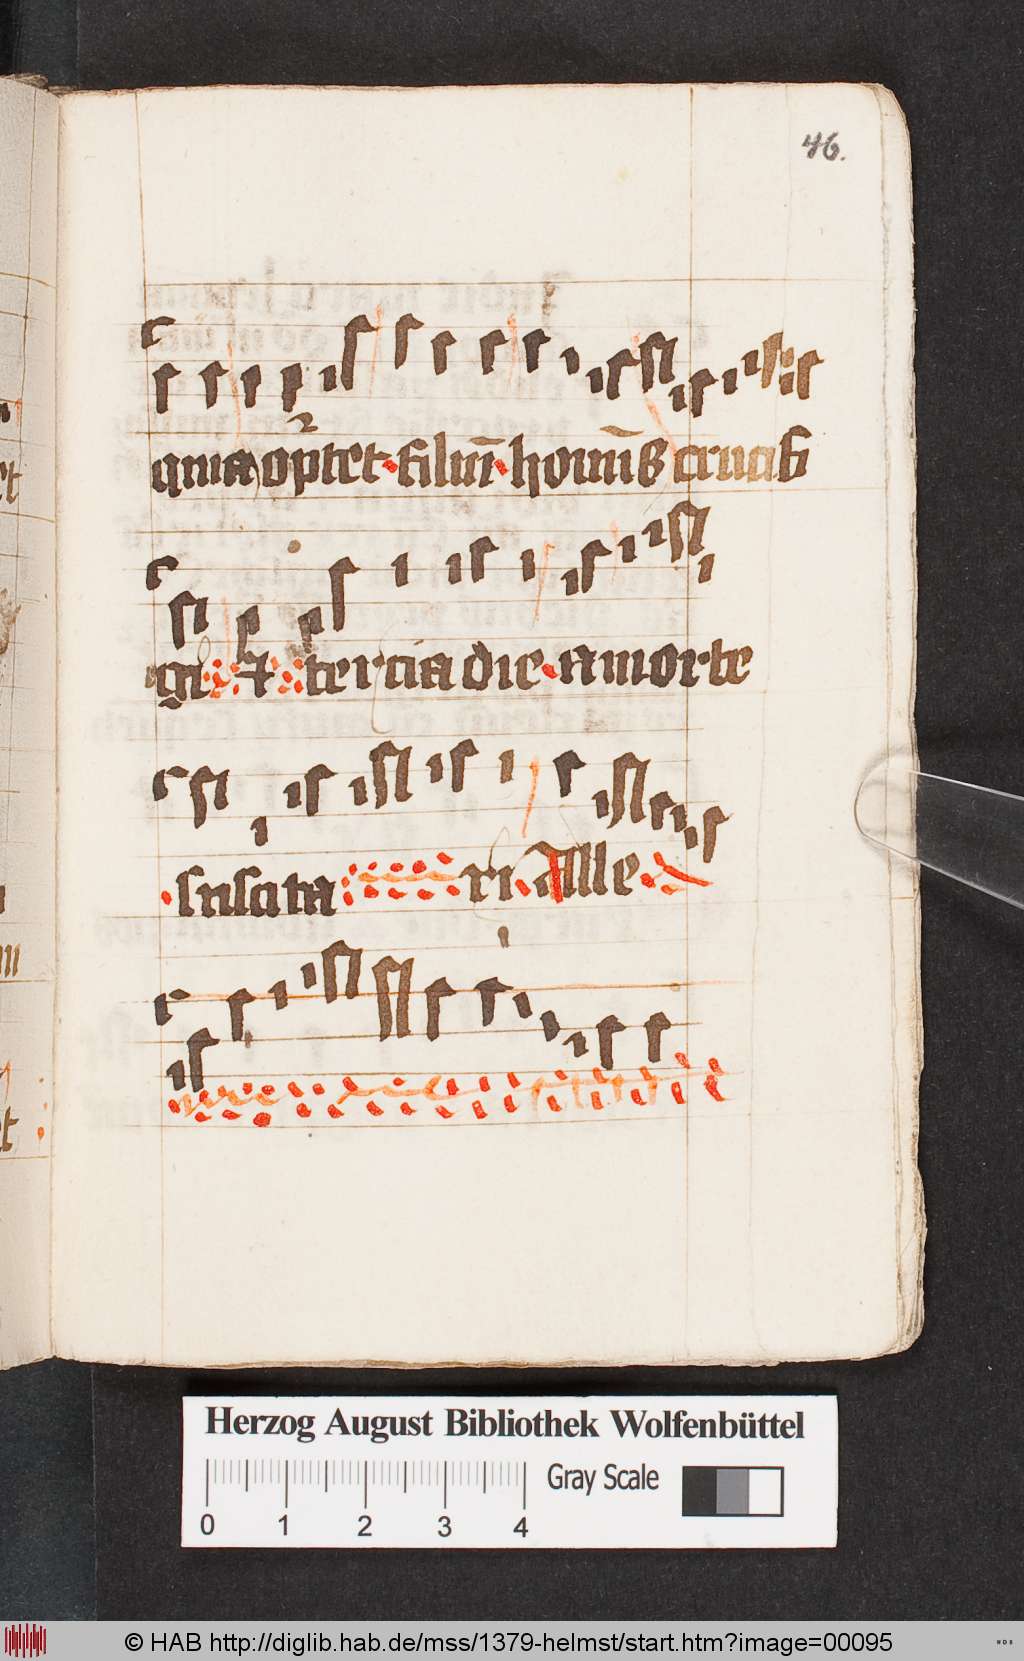 46.
quia op̄tet filiū homīs crucifi
gi et tercia die a morte
suscita ri Alle
Herzog August Bibliothek Wolfenbüttel
0 1 2 3 4 Gray Scale
© HAB http://diglib.hab.de/mss/1379-helmst/start.htm?image=00095